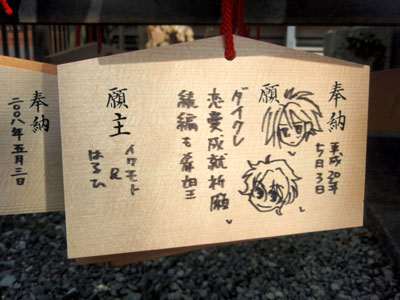 奉納
平成20年
5月3日
願
ダイクレ
恋愛成就祈願
続編も希望
願主
イワモト
&
はるひ
奉納
二〇〇八年五月三日